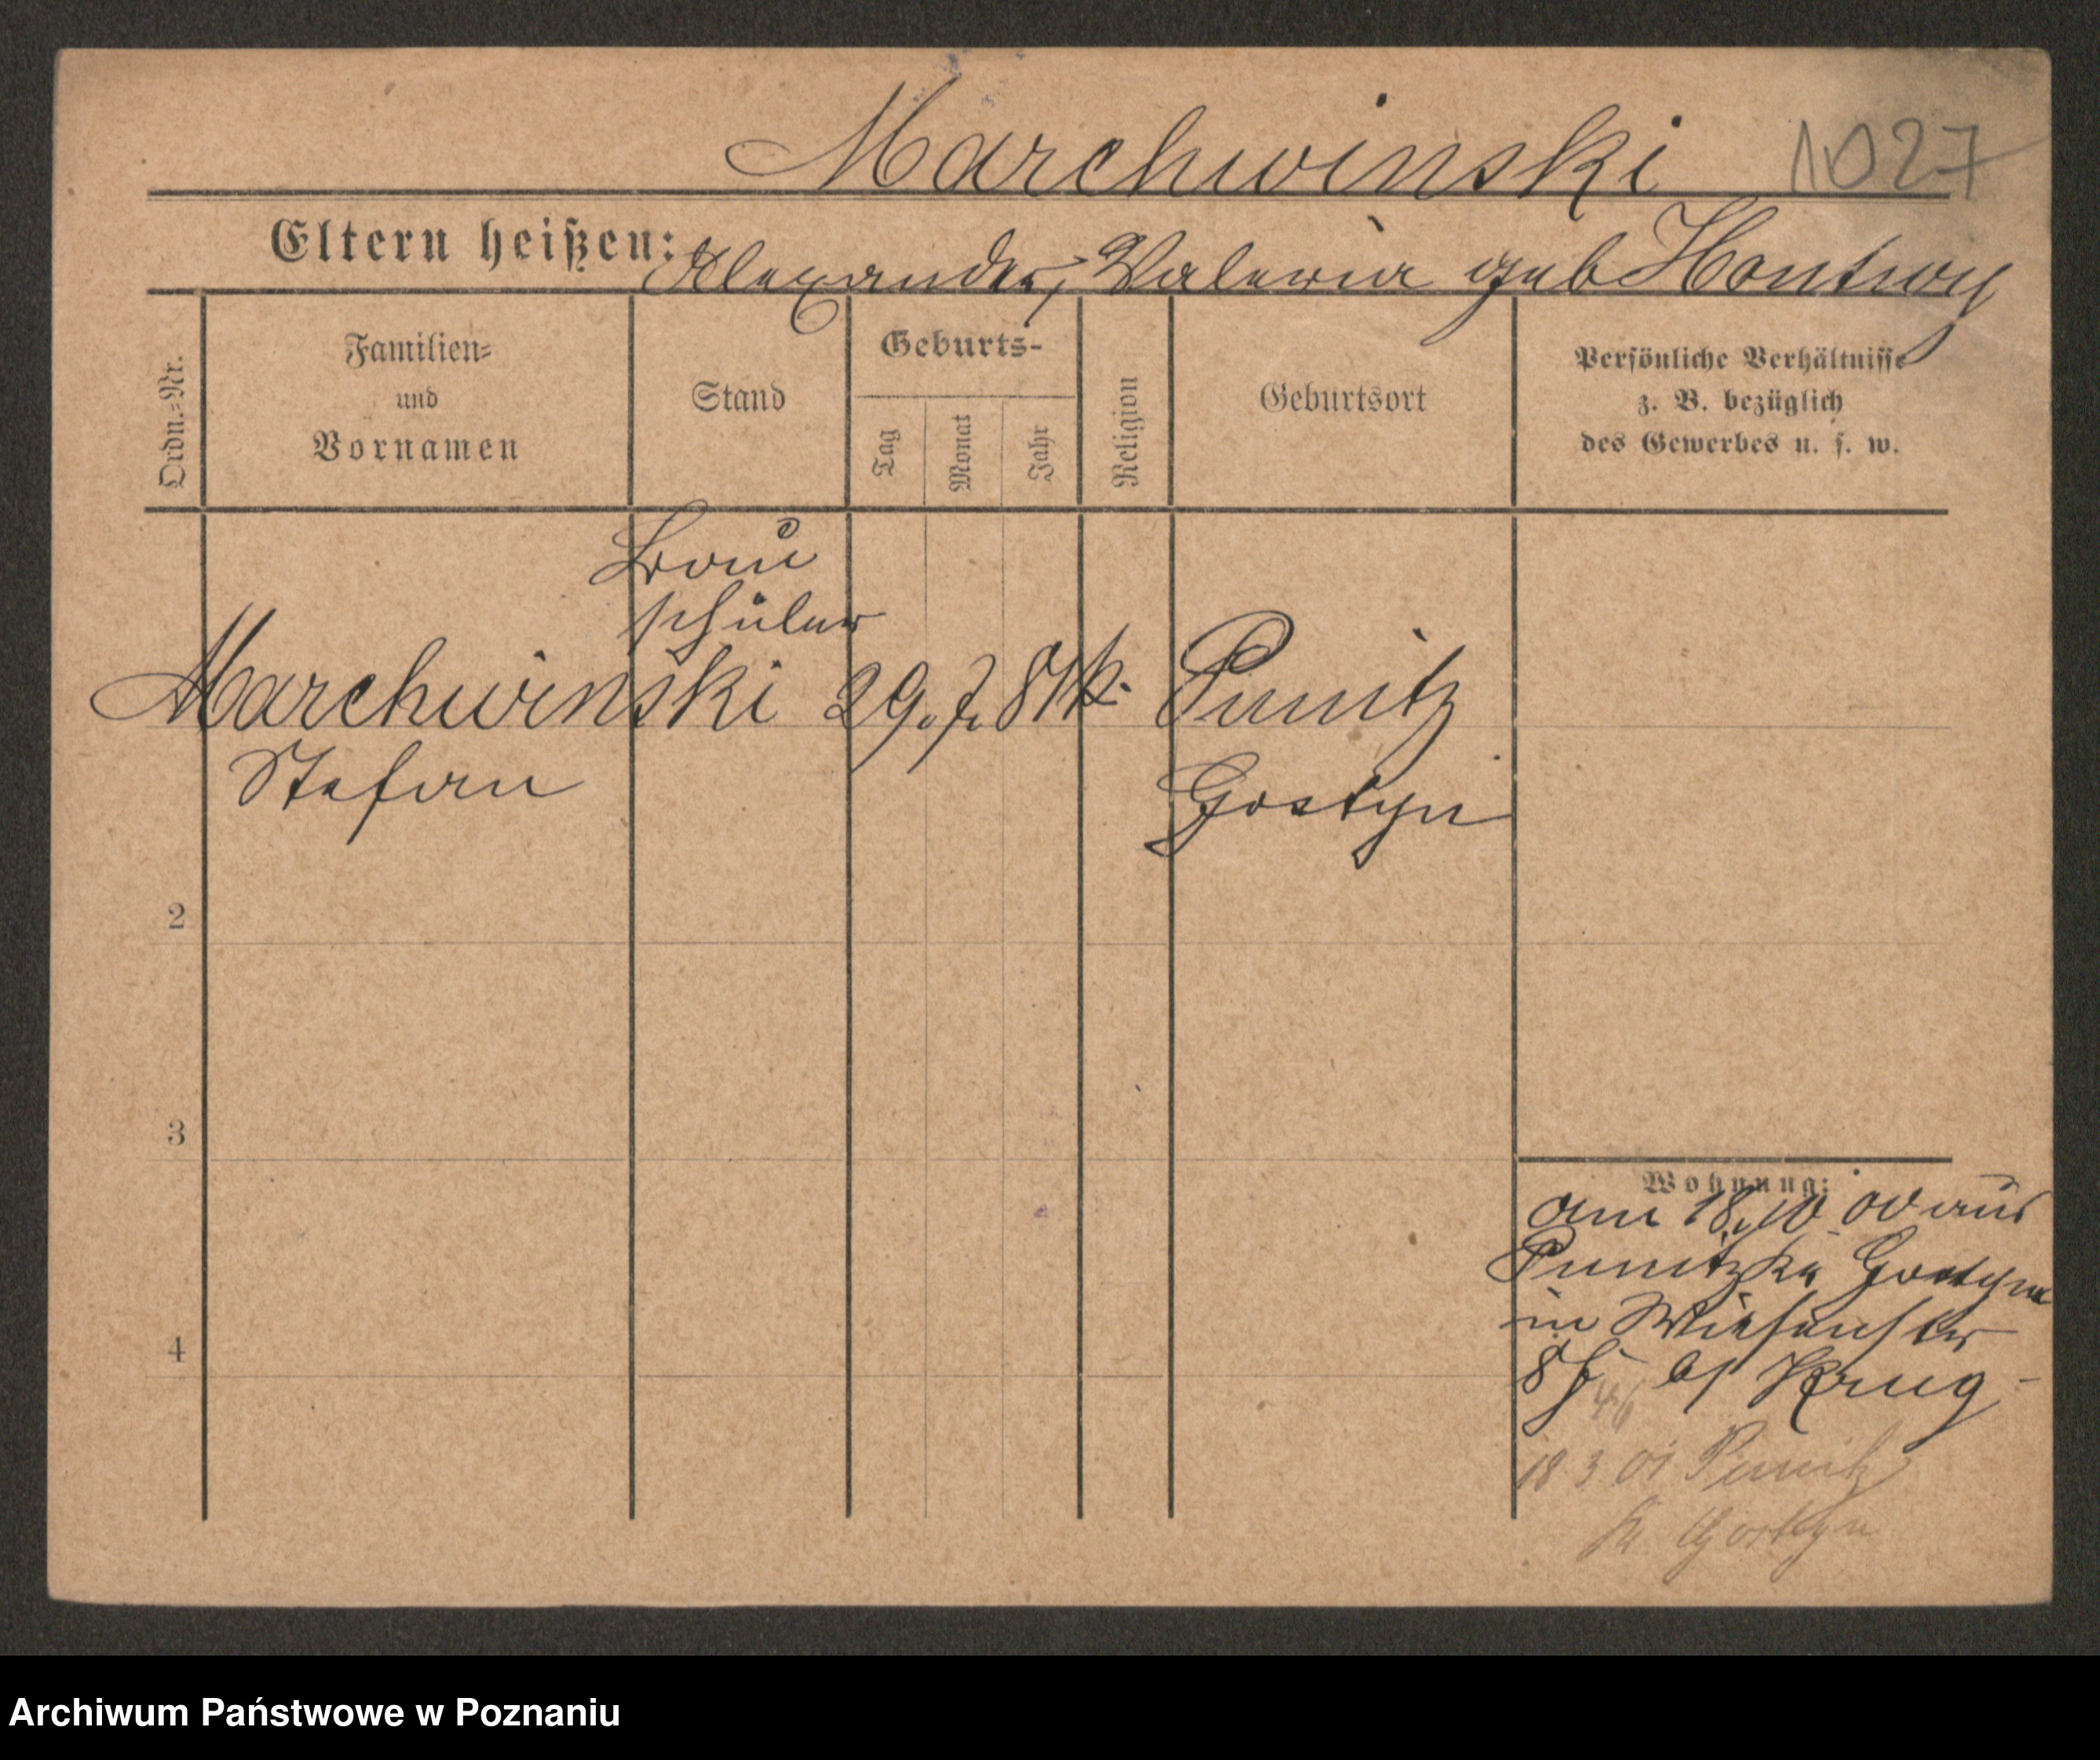 Marchwinski 1027
Eltern heißen: Alexander, Valeria geb Hontwy
Ordn.=Nr.
Familien=
und
Vornamen
Stand
Geburts-
Tag
Monat
Jahr
Religion
Geburtsort
Persönliche Verhältnisse
z. B. bezüglich
des Gewerbes u. s. w.
Bau
schüler
Marchwinski 29. 7. 81 k. Punitz
Stefan Gostyn
2
3
4
Wohnung:
am 18.10 00 aus
Punitz Kr Gostyn
in
8 bei Krug
18 3 01 Punitz
K. Gostyn
Archiwum Państwowe w Poznaniu